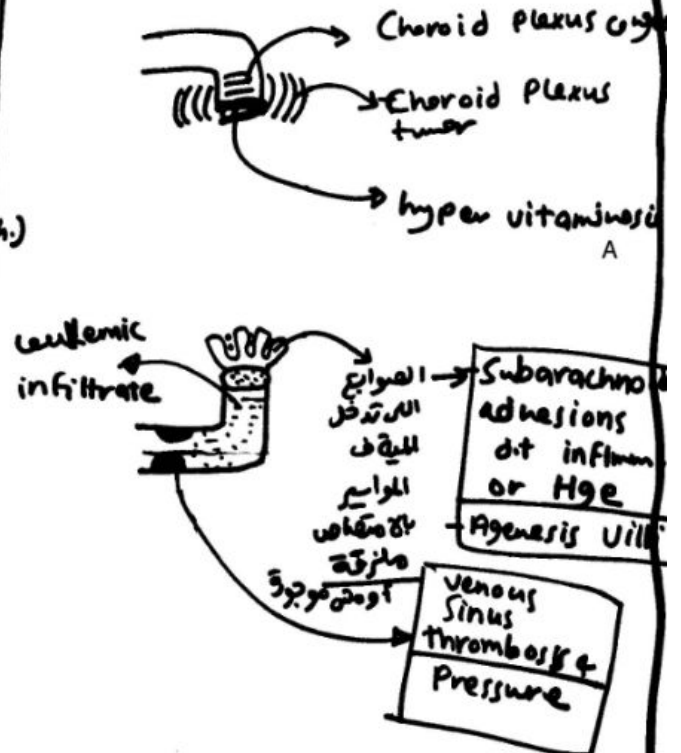 Choroid Plexus
Choroid Plexus
tumor
hyper vitaminosi
A
h.)
leukemic
infiltrate
الصوابع
اللى تدخل
المية فى
المواسير
بالامتصاص
ملزقة
أومش موجودة
Subarachno
adhesions
d.t inflmm
or Hge
Agenesis Villi
venous
Sinus
thrombosis &
Pressure